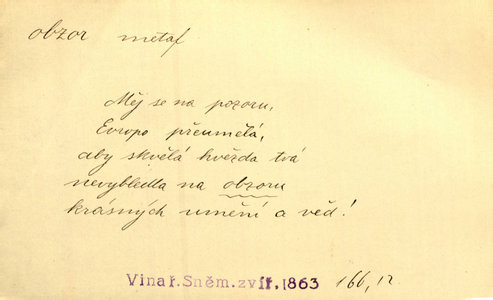 obzor metaf
Měj se na pozoru,
Evropo přeumělá,
aby skvělá hvězda tvá
nevybledla na obzoru
krásných umění a věd!
Vinař.Sněm.zvíř.1863 166,12